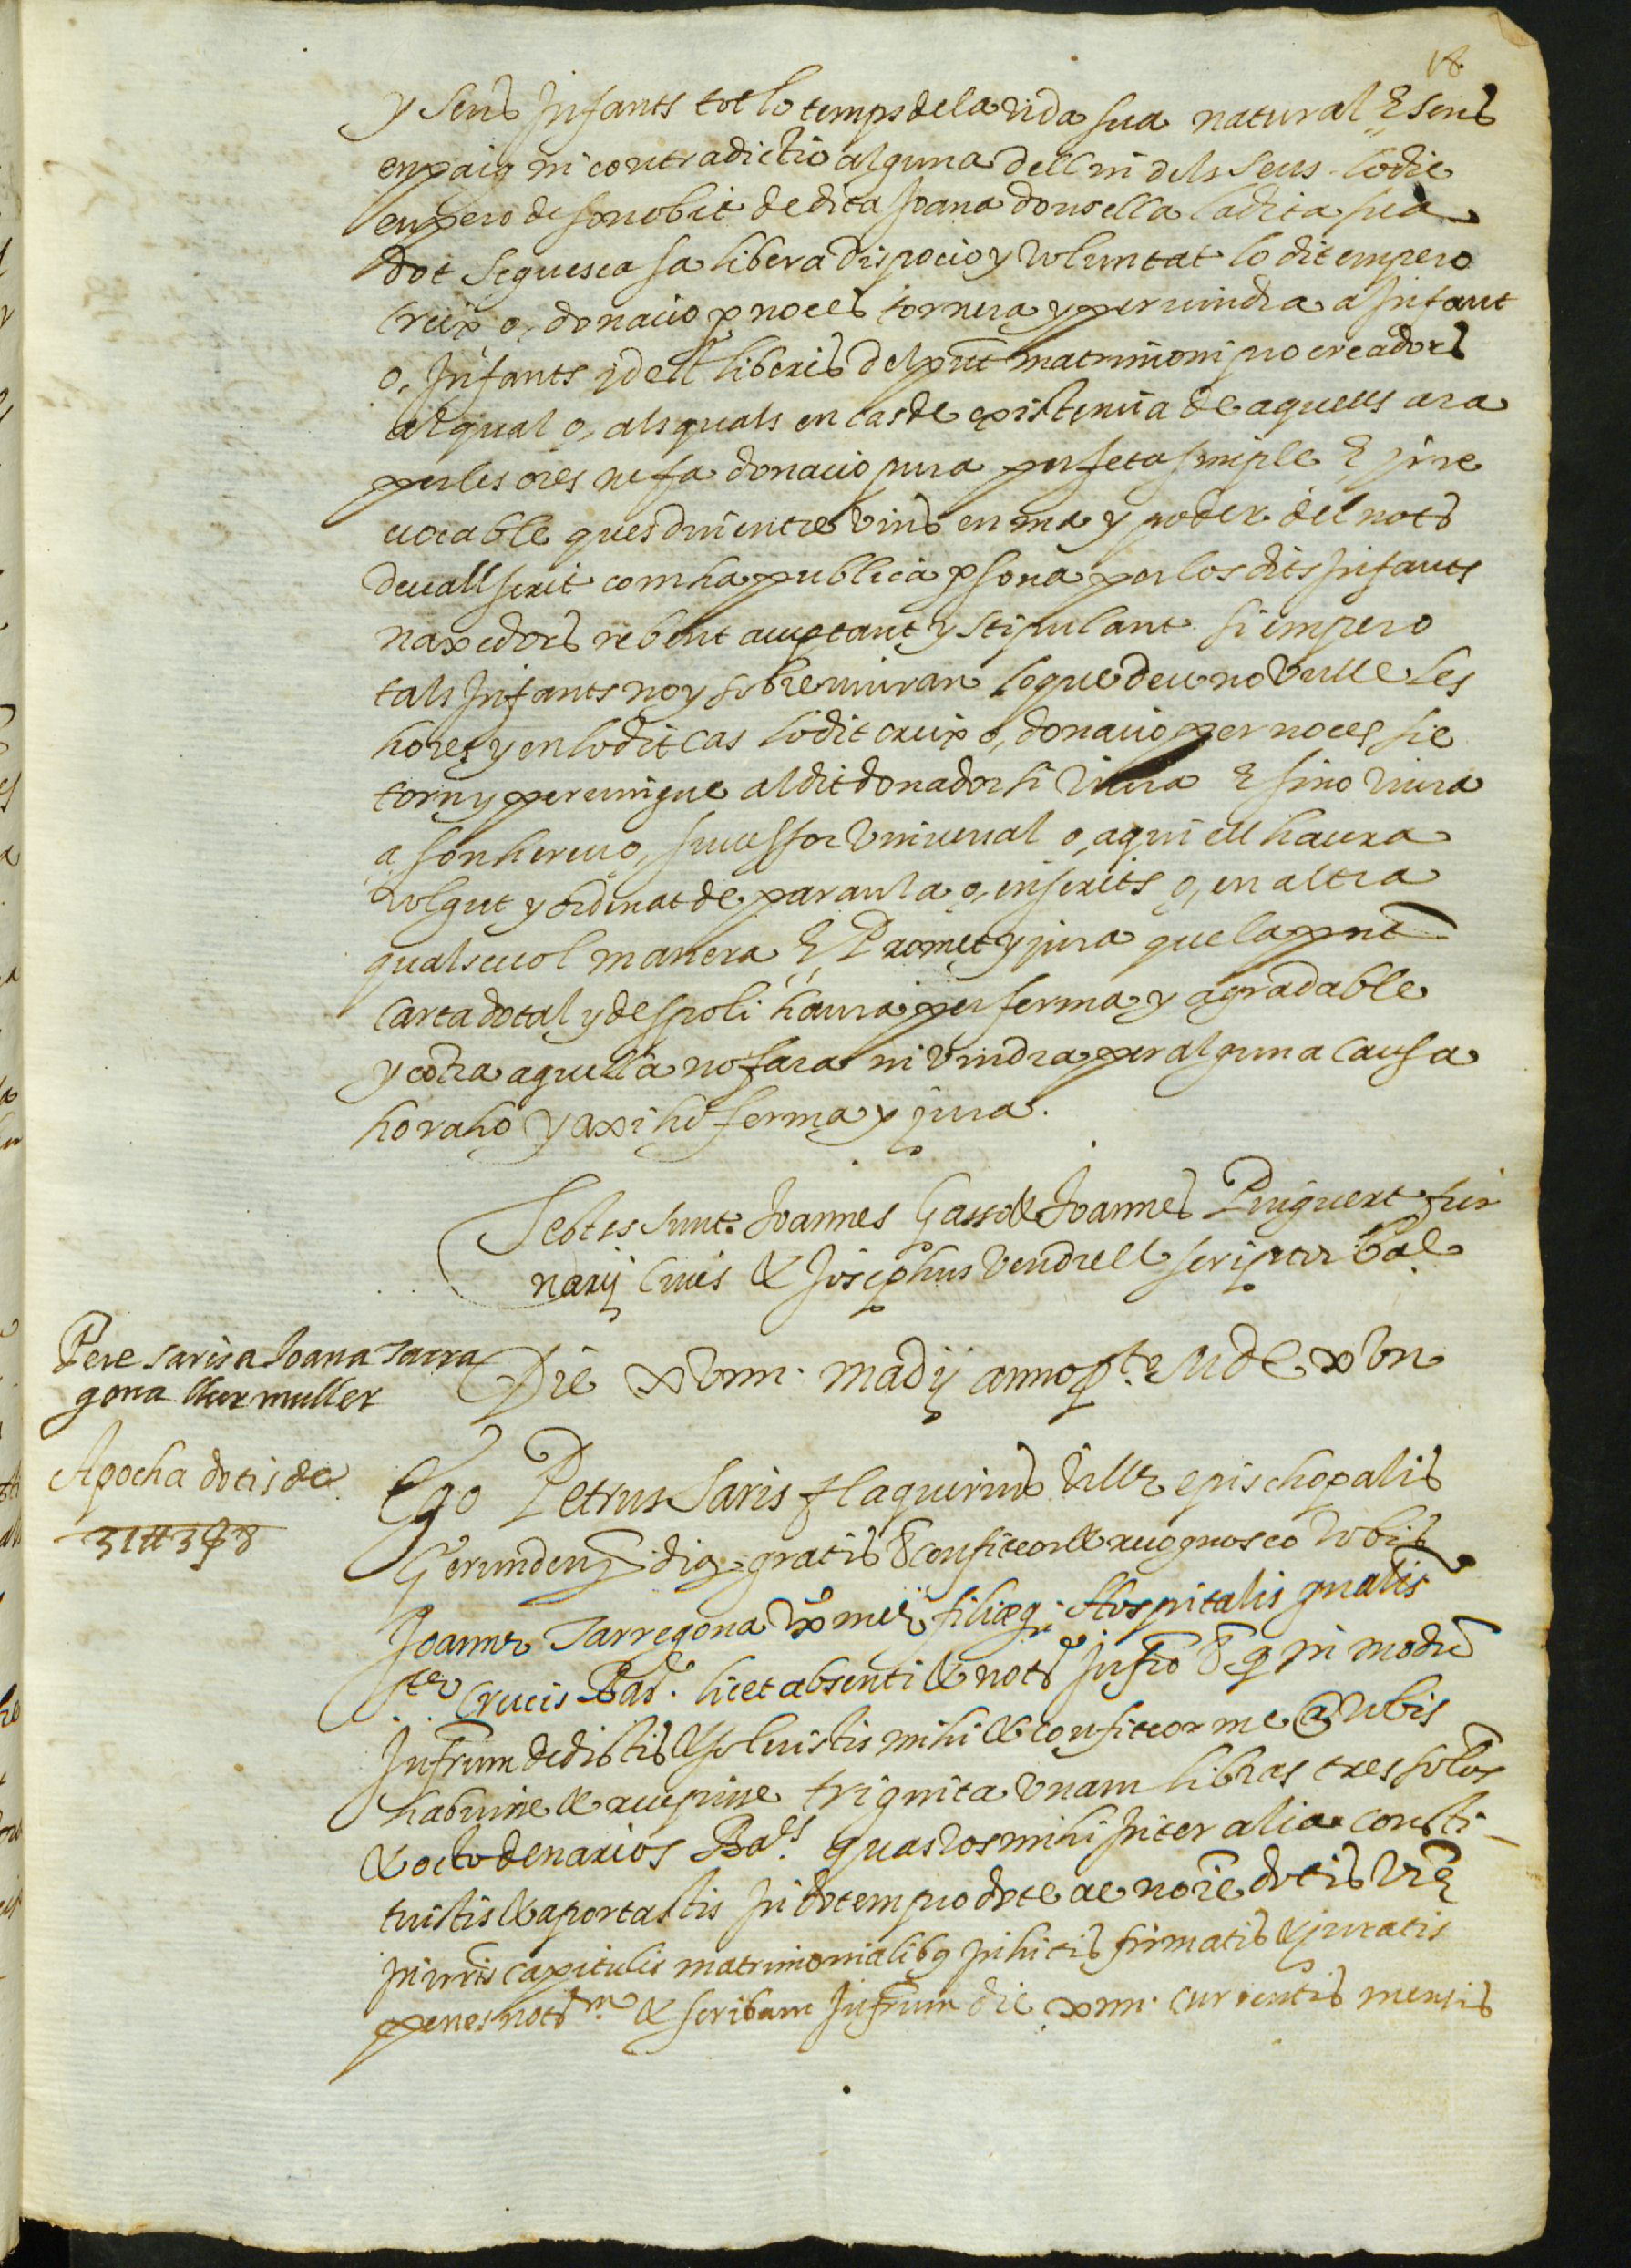 18
y sens Infants tot lo temps de la vida sua natural E sens
enpaig ni contradictio alguna dell ni dels seus. Lo die
enpero de son obit de dita Joana donsella la dita sua
dot seguesca sa libera dispocio y voluntat lo dit empero
creix o, donacio p noces tornera y pervindra a Infant
o, Infants ydest liberis del pnt matrimoni procreadors
al qual o, als quals en cas de existencia de aquells ara
per les ores ne fa donacio pura perfeta simple E jrre
vocable ques diu entre vius en ma y poder del nots
devall scrit com ha publica psona per los dits Infants
naxedors rebent acceptant y stipulant. si empero
tals Infants no y sobreviuran lo que deu no vulle les
hores y en lo dit cas lo dit creix o, donacio per noces sie
torn y pervingue al dit donador si viura E sino viura
a son hereu o, successor universal o, a qui ell haura
volgut y ordenat de paraula o, in scrits o, en altra
qualsevol manera E, Promet y jura que la pnt
carta dotal y de spoli haura per ferma y agradable
y cōtra aquella no fara ni vindra per alguna causa
ho raho y axi ho ferma y jura.
Testes sunt Joannes Gasso & Joannes Puigvert fur
narij Cives & Josephus Vendrell scriptor Bar.
Pere saris a Joana Tarra
gona llur muller
Die xviiii. madij anno p.te MDLxvii
Apocha dotis de
31 ₶ 3 ẞ 8
Ego Petrus Saris flaquerius ville epischopalis
Gerunden dio gratis & confiteor & recognosco vobis
Joanne Tarregona ux mee filieq Hospitalis gnalis
ste Crucis Bar. licet absenti & nots Infro & q in modū
Infrum dedistis & solvistis mihi & confiteor me a vobis
habuisse & recepisse trigninta unam libras tres solos
& octo denarios Bar. quas vos mihi Inter alia consti-
tuistis & aportastis In dotem pro dote ac noīe dotis vrē
In nris capitulis matrimonialibq Inhitis firmatis & juratis
penes nots m & scribam Infrum die xiiii. currentis mensis